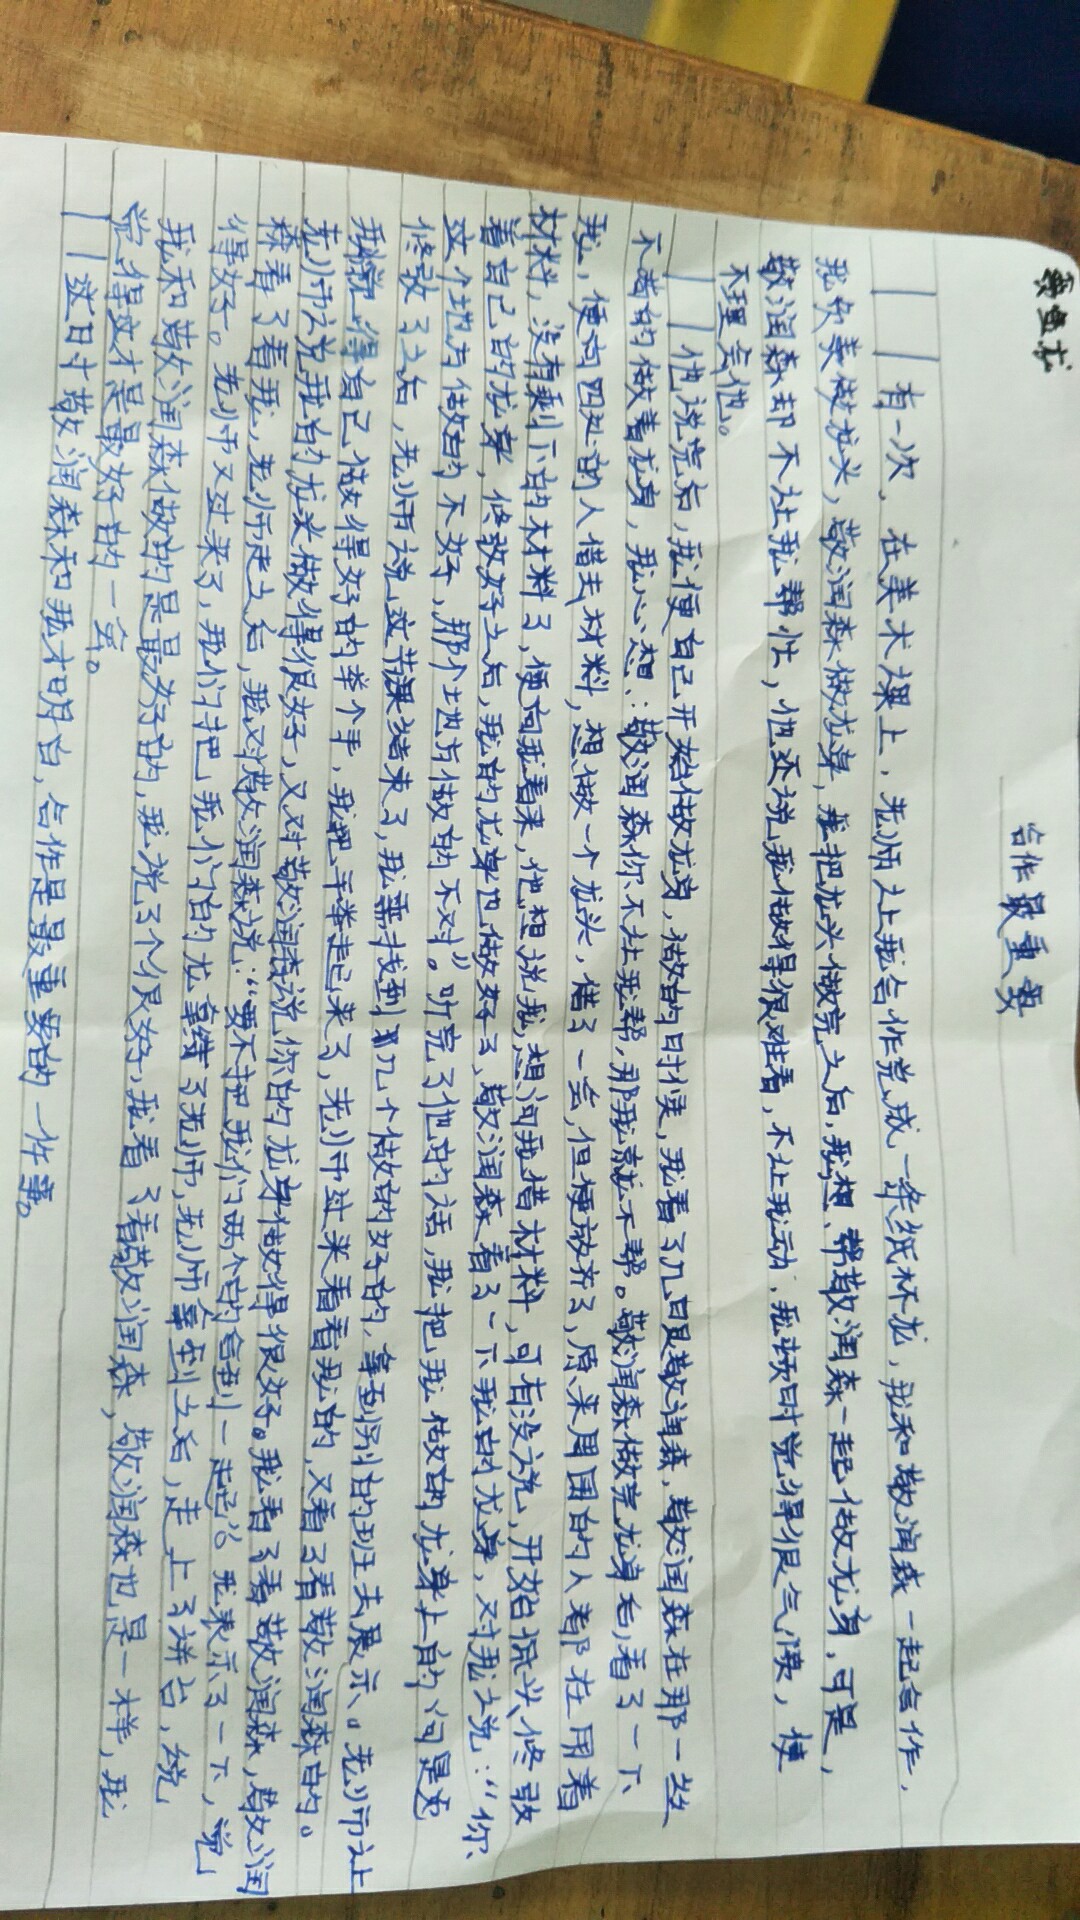 合作最重要
有一次，在美术课上，老师让我合作完成一条纸杯龙，我和敬润森一起合作，
我负责做龙头，敬润森做龙身，我把龙头做完之后，我想帮敬润森一起做龙身，可是，
敬润森却不让我帮忙，他还说我做得很难看，不让我动，我顿时觉得很气愤，便
不理会他。
他说完后，我便自己开始做龙身，做的时候，我看了几眼敬润森，敬润森在那一丝
不苟的做着龙身，我心想：敬润森你不让我帮，那我就不帮。敬润森做完龙身后，看了一下
我，便向四处的人借去材料，想做一个龙头，借了一会，但便放弃了，原来周围的人都在用着
材料，没有剩下的材料了，便向我看来，他想说我，想问我借材料，可有没说，开始低头修改
着自己的龙身，修改好之后，我的龙身也做好了，敬润森看了一下我的龙身，又对我说：“你
这个地方做的不好，那个地方做的不对”。听完了他的话，我把我做的龙身上的问题
修改了之后，老师说这节课结束了，我需找到几个做的好的，拿到别的班去展示。老师让
我觉得自己做得好的举个手，我把手举起来了，老师过来看看我的，又看了看敬润森的。
老师说我的龙头做得很好，又对敬润森说你的龙身做得很好。我看了看敬润森，敬润
森看了看我，老师走之后，我对敬润森说：“要不把我们两个的合到一起”。我表示了一下，说
得好。老师又过来了，我们把我们的龙拿给了老师，老师拿到之后，走上了讲台，统
我和敬润森做的是最好的，我说了个很好，我看了看敬润森，敬润森也是一样，我
觉得这才是最好的一次。
这时敬润森和我才明白，合作是最重要的一件事。